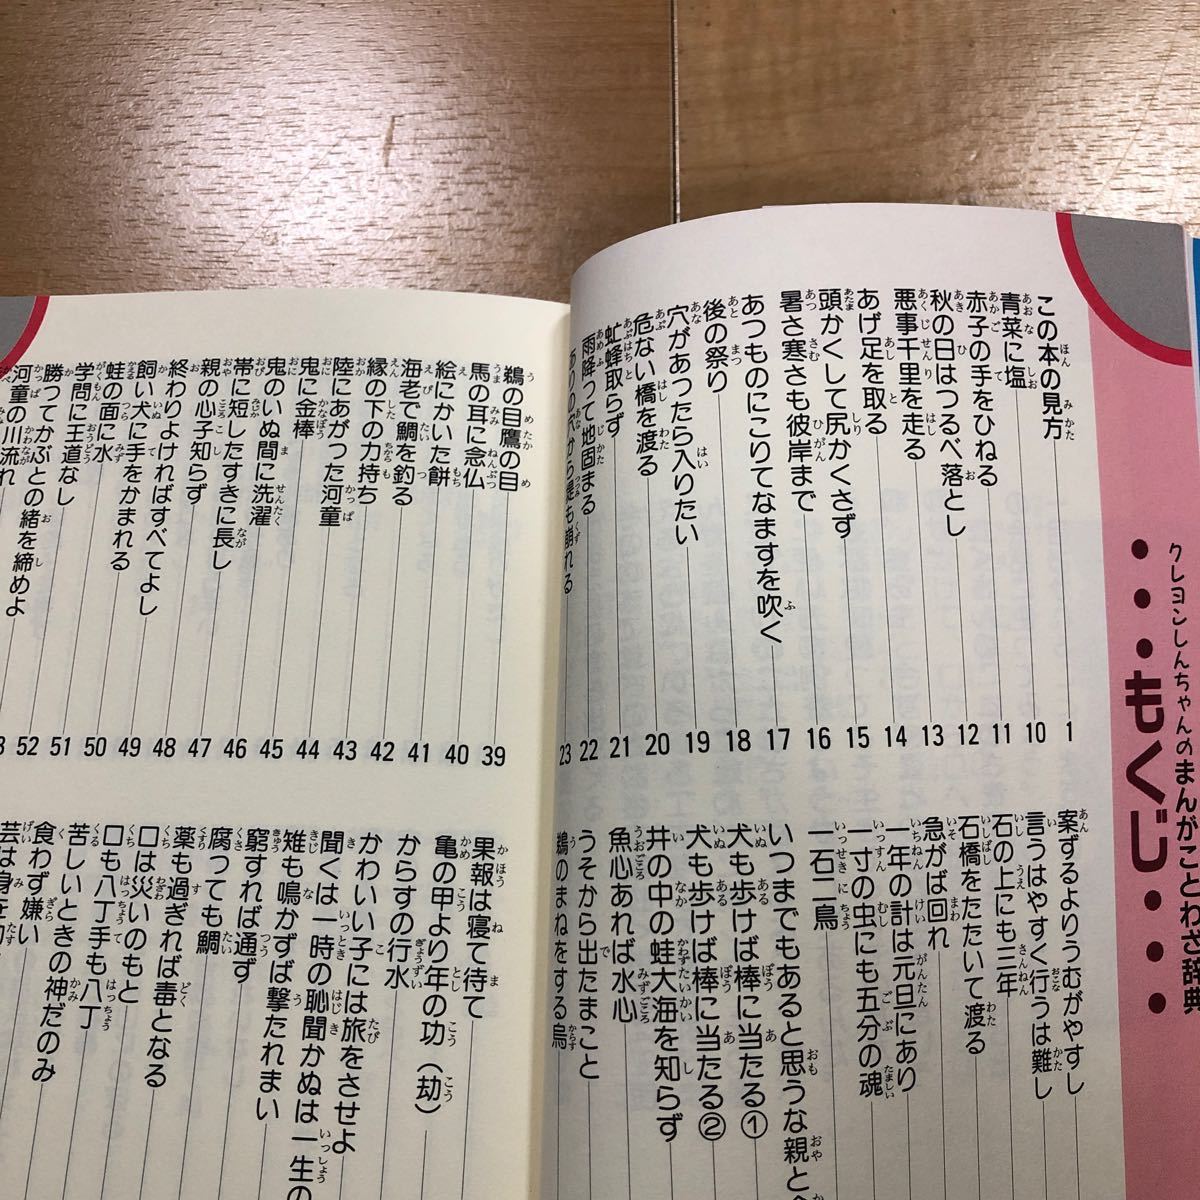 クレヨンしんちゃんのまんがことわざ辞典
もくじ
この本の見方 1
青菜に塩 10
赤子の手をひねる 11
秋の日はつるべ落とし 12
悪事千里を走る 13
あげ足を取る 14
頭かくして尻かくさず 15
暑さ寒さも彼岸まで 16
あつものにこりてなますを吹く 17
後の祭り 18
穴があったら入りたい 19
危ない橋を渡る 20
虻蜂取らず 21
雨降って地固まる 22
ありの穴から堤も崩れる 23
案ずるよりうむがやすし
言うはやすく行うは難し
石の上にも三年
石橋をたたいて渡る
急がば回れ
一年の計は元旦にあり
一寸の虫にも五分の魂
一石二鳥
いつまでもあると思うな親と
犬も歩けば棒に当たる①
犬も歩けば棒に当たる②
井の中の蛙大海を知らず
魚心あれば水心
うそから出たまこと
鵜のまねをする烏
鵜の目鷹の目 39
馬の耳に念仏 40
絵にかいた餅 41
海老で鯛を釣る 42
縁の下の力持ち 43
陸にあがった河童 44
鬼に金棒 45
鬼のいぬ間に洗濯 46
帯に短したすきに長し 47
親の心子知らず 48
終わりよければすべてよし 49
飼い犬に手をかまれる 50
蛙の面に水 51
学問に王道なし 52
勝ってかぶとの緒を締めよ 3
河童の川流れ
果報は寝て待て
亀の甲より年の功（劫）
からすの行水
かわいい子には旅をさせよ
聞くは一時の恥聞かぬは一生の
雉も鳴かずば撃たれまい
窮すれば通ず
腐っても鯛
薬も過ぎれば毒となる
口は災いのもと
口も八丁手も八丁
苦しいときの神だのみ
食わず嫌い
芸は身を